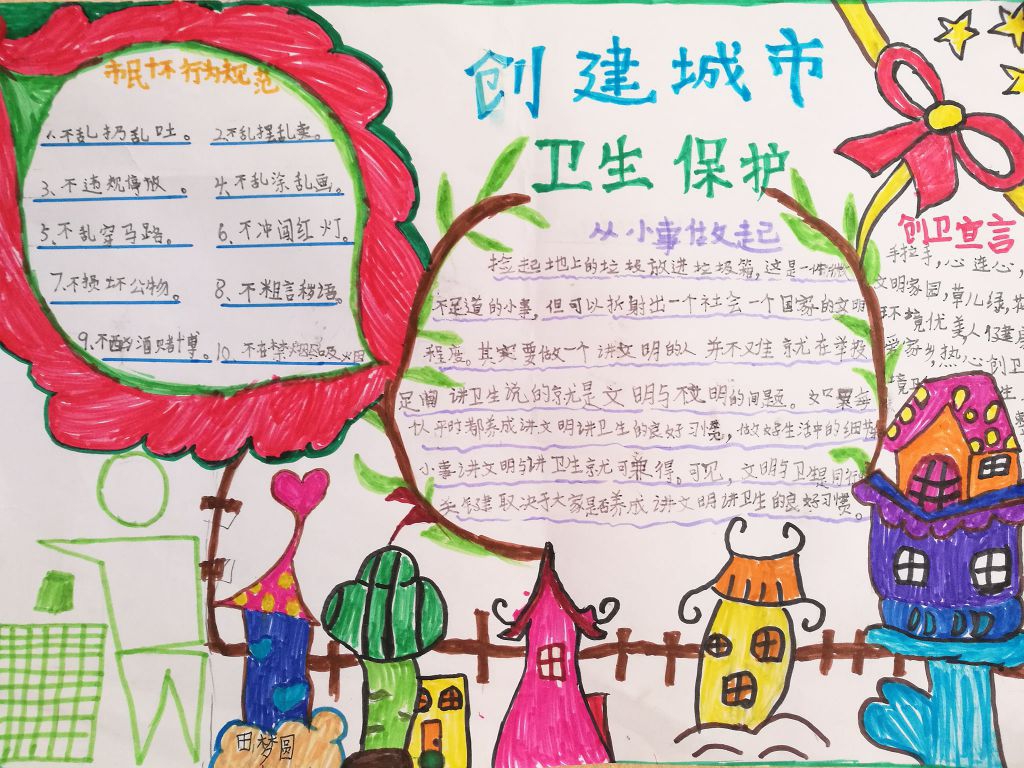 市民十不行为规范
1.不乱扔乱吐。 2.不乱摆乱卖。
3、不违规停放。 4、不乱涂乱画。
5、不乱穿马路。 6、不冲闯红灯。
7、不损坏公物。 8、不粗言秽语。
9、不酗酒赌博。 10、不在禁烟区吸火因
创建城市
卫生保护
从小事做起
捡起地上的垃圾放进垃圾箱,这是一件
不足道的小事,但可以折射出一个社会一个国家的文明
程度。其实要做一个讲文明的人并不难就在举投
足间 讲卫生说的就是文明与不文明的问题。
从平时都养成讲文明讲卫生的良好习惯,做好生活中的细节
小事讲文明与讲卫生就可兼得。可见,文明与卫生是同行
关键建取决于大家是否养成讲文明讲卫生的良好习惯。
创卫宣言
手拉手,心连心,
文明家园,草儿绿,花
环境优美人健康
爱家乡,热心创卫
田梦圆